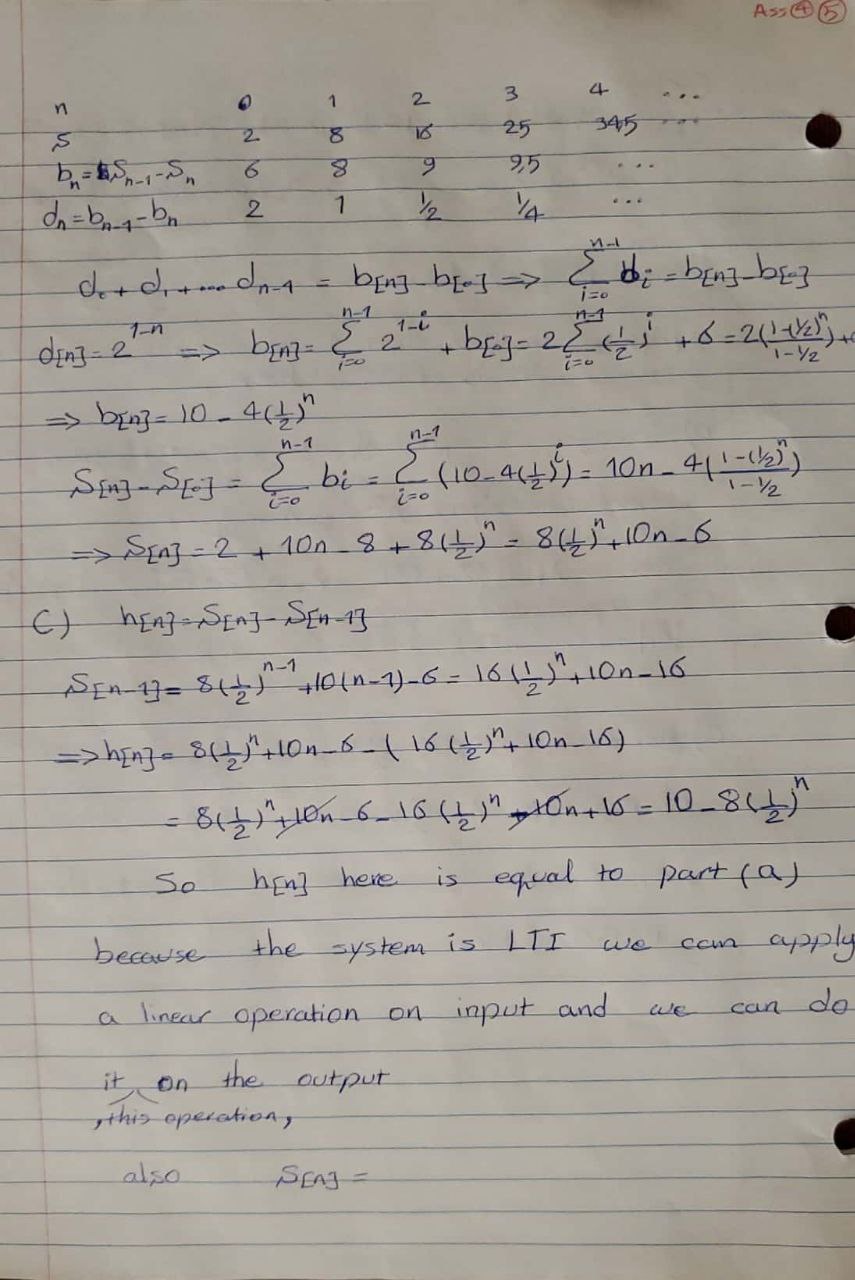 Ass ④ ⑤
n 0 1 2 3 4 ...
S 2 8 16 25 34,5 ...
bₙ = Sₙ₋₁ - Sₙ 6 8 9 9,5 ...
dₙ = bₙ₋₁ - bₙ 2 1 1/2 1/4 ...
d₀ + d₁ + ... dₙ₋₁ = b[n] - b[0] => Σ_{i=0}^{n-1} dᵢ = b[n] - b[0]
d[n] = 2^{1-n} => b[n] = Σ_{i=0}^{n-1} 2^{1-i} + b[0] = 2 Σ_{i=0}^{n-1} (1/2)^i + 6 = 2((1-(1/2)^n)/(1-1/2)) +
=> b[n] = 10 - 4(1/2)^n
S[n] - S[0] = Σ_{i=0}^{n-1} bᵢ = Σ_{i=0}^{n-1} (10 - 4(1/2)^i) = 10n - 4((1-(1/2)^n)/(1-1/2))
=> S[n] = 2 + 10n - 8 + 8(1/2)^n = 8(1/2)^n + 10n - 6
C) h[n] = S[n] - S[n-1]
S[n-1] = 8(1/2)^{n-1} + 10(n-1) - 6 = 16(1/2)^n + 10n - 16
=> h[n] = 8(1/2)^n + 10n - 6 - (16(1/2)^n + 10n - 16)
= 8(1/2)^n + 10n - 6 - 16(1/2)^n - 10n + 16 = 10 - 8(1/2)^n
So h[n] here is equal to part (a)
because the system is LTI we can apply
a linear operation on input and we can do
it on the output
, this operation,
also S[n] =